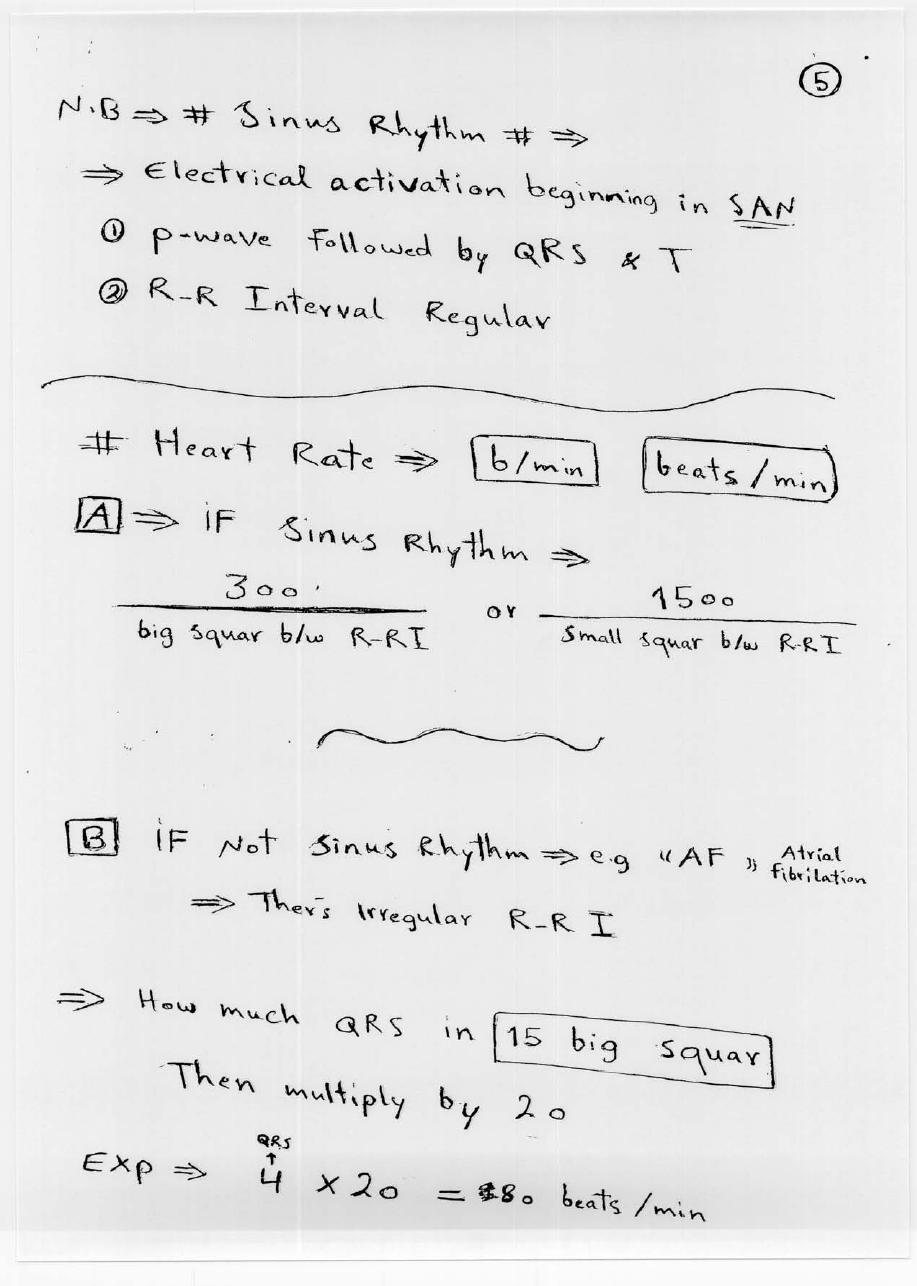 5
N.B ⇒ # Sinus Rhythm # ⇒
⇒ Electrical activation beginning in SAN
① p-wave followed by QRS & T
② R-R Interval Regular
# Heart Rate ⇒ b/min beats/min
A ⇒ iF Sinus Rhythm ⇒
300 or 1500
big squar b/w R-RI small squar b/w R-RI
B iF Not Sinus Rhythm ⇒ e.g "AF" Atrial fibrilation
⇒ Ther's Irregular R-R I
⇒ How much QRS in 15 big squar
Then multiply by 20
QRS
↑
Exp ⇒ 4 × 20 = 80 beats/min